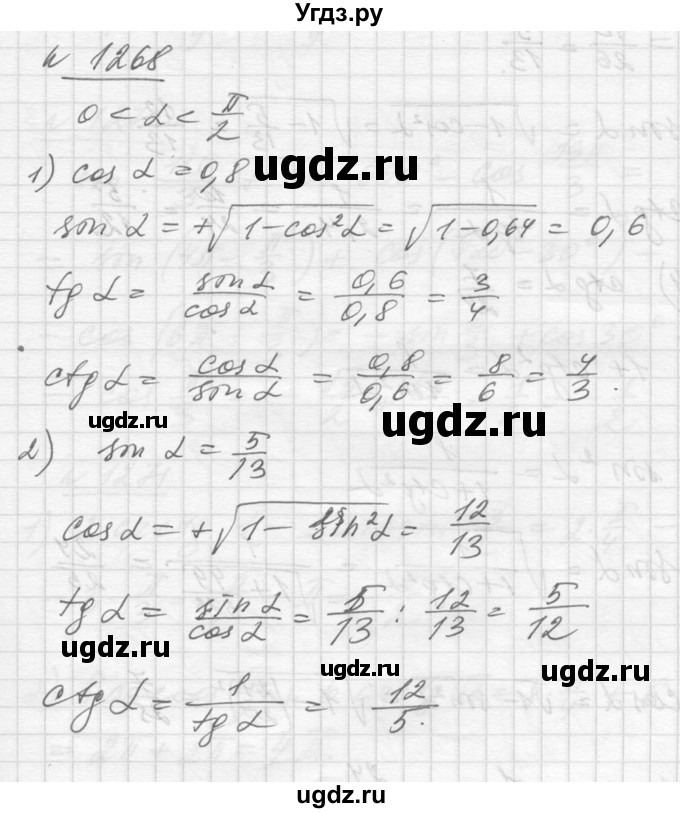 Угдз.ру
№ 1268
0 < α < π/2
1) cos α = 0,8
ugdz.ru
sin α = +√(1-cos²α) = √(1-0,64) = 0,6
tg α = sin α/cos α = 0,6/0,8 = 3/4
ctg α = cos α/sin α = 0,8/0,6 = 8/6 = 4/3.
ugdz.ru
ugdz.ru
2) sin α = 5/13
cos α = +√(1 - sin²α) = 12/13
ugdz.ru
tg α = sin α/cos α = 5/13 : 12/13 = 5/12
ugdz.ru
ugdz.ru
ugdz.ru
ctg α = 1/tg α = 12/5.
ugdz.ru
ugdz.ru
ugdz.ru